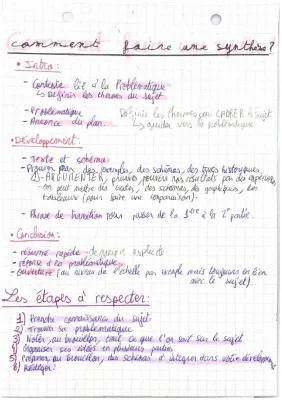 Comment faire une synthèse ?
• Intro :
- Contexte lié à la Problématique
↳ Définir les thèmes du sujet
- Problématique
- Annonce du plan
Définir les thèmes pour CADRER le sujet
↳ guider vers la problématique
• Développement :
- Texte et schéma
- Preuves par des exemples, des schémas, des
⚠ ARGUMENTER, preuves
- on peut mettre des textes, des schémas, des graphiques, en
(pour faire une comparaison).
- Phrase de transition pour passer de la 1ère à la 2e partie.
• Conclusion :
- résumé rapide
- réponse à la problématique
- ouverture (au niveau de l'échelle par exemple mais toujours en lien
avec le sujet)
Les étapes à respecter :
1) Prendre connaissance du sujet
2) Trouver sa problématique
3) Noter, au brouillon, tout ce que l'on sait sur le sujet
4) Organiser ses idées en plusieurs parties
5) Préparer, au brouillon, des schémas à intégrer dans votre développement
6) Rédiger !